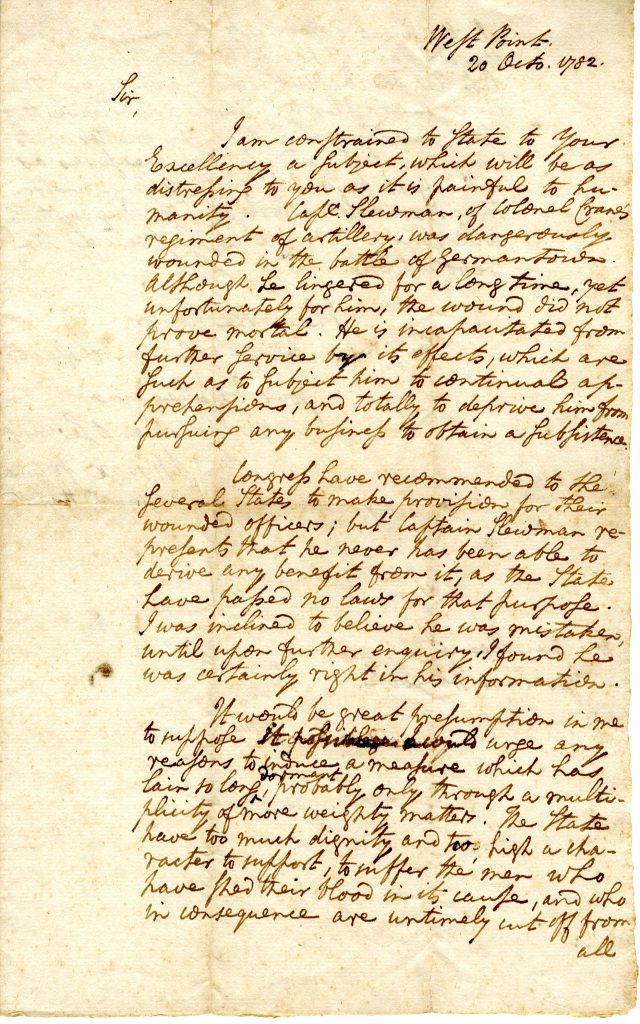 West Point.
20 Octo. 1782.
Sir,
I am constrained to State to Your
Excellency a subject, which will be as
distressing to you as it is painful to hu-
manity. Capt. Slewman, of Colonel Crane's
regiment of artillery, was dangerously
wounded in the battle of Germantown.
Although he lingered for a long time, yet
unfortunately for him, the wound did not
prove mortal. He is incapacitated from
further service by its effects, which are
such as to subject him to continual ap-
prehensions, and totally to deprive him from
pursuing any business to obtain a subsistence.
Congress have recommended to the
several States to make provision for their
wounded officers; but Captain Slewman re-
presents that he never has been able to
derive any benefit from it, as the State
have passed no laws for that purpose.
I was inclined to believe he was mistaken,
until upon further enquiry, I found he
was certainly right in his information.
It would be great presumption in me
to suppose urge any
reasons to induce a measure which has
dormant
lain so long, probably only through a multi-
plicity of more weighty matters. The State
have too much dignity and too high a cha-
racter to support, to suffer the men who
have shed their blood in its cause, and who
in consequence are untimely cut off from
all